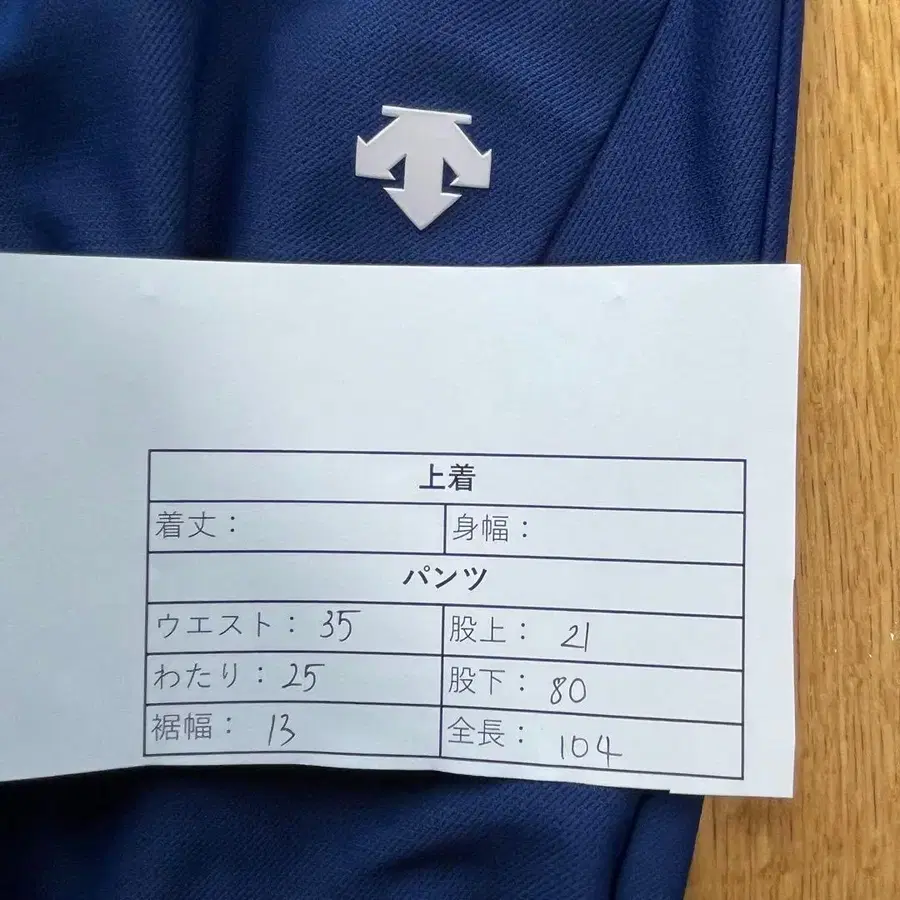 上着
着丈： 身幅：
パンツ
ウエスト： 35 股上： 21
わたり： 25 股下： 80
裾幅： 13 全長： 104